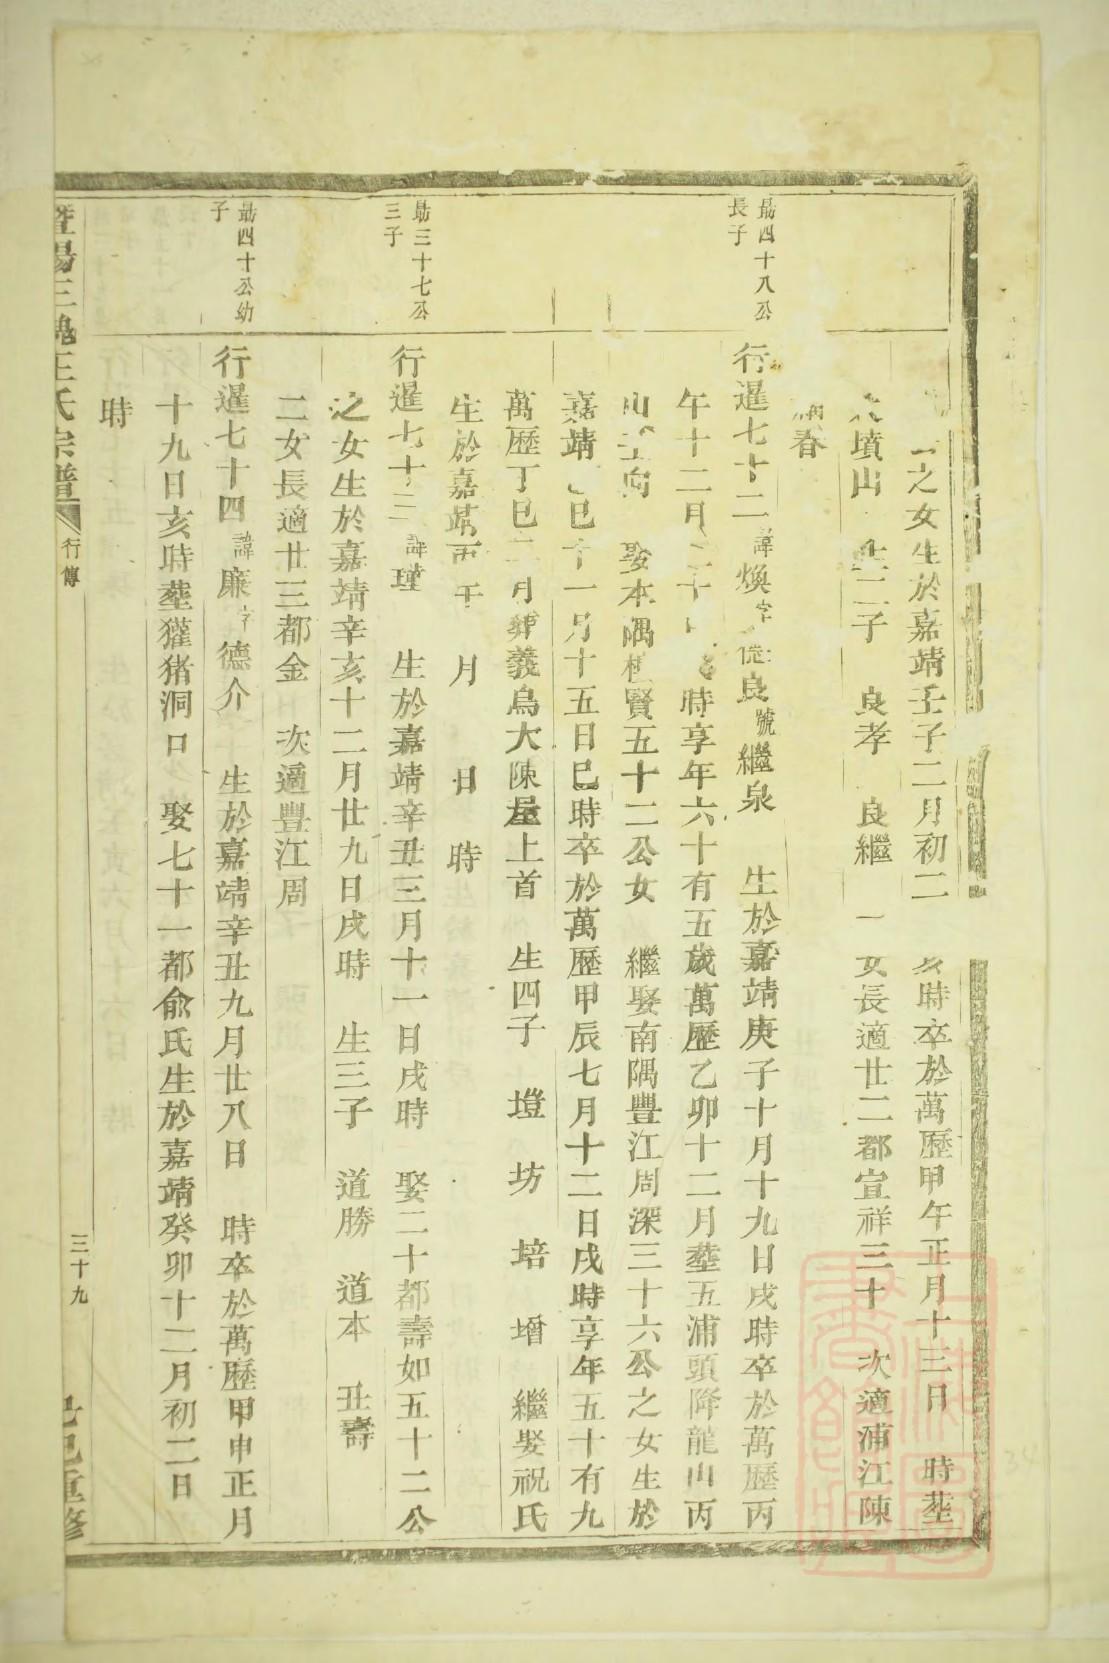 之女生於嘉靖壬子二月初二 亥時卒於萬歷甲午正月十三日 時塟
墳山 生二子 良孝 良繼 女長適廿二都宣祥三十 次適浦江陳
春
勗四十八公
長子
行暹七十二 諱煥字 良號繼泉 生於嘉靖庚子十月十九日戌時卒於萬歷丙
午十二月 時享年六十有五歲萬歷乙卯十二月塟五浦頭降龍山丙
山 向 娶本隅 賢五十二公女 繼娶南隅豐江周深三十六公之女生於
嘉靖 巳十一月十五日巳時卒於萬歷甲辰七月十二日戌時享年五十有九
萬歷丁巳 月葬義烏大陳屋上首 生四子 墱 坊 培 增 繼娶祝氏
生於嘉靖 月 日 時
勗三十七公
三子
行暹七十三 諱瑾 生於嘉靖辛丑三月十一日戌時 娶二十都壽如五十二公
之女生於嘉靖辛亥十二月廿九日戌時 生三子 道勝 道本 丑壽
二女長適廿三都金 次適豐江周
勗四十公幼
子
行暹七十四 諱廉字 德介 生於嘉靖辛丑九月廿八日 時卒於萬歷甲申正月
十九日亥時塟獾猪洞口 娶七十一都俞氏生於嘉靖癸卯十二月初二日
時
暨陽 王氏宗譜 行傳 三十九 己巳重修